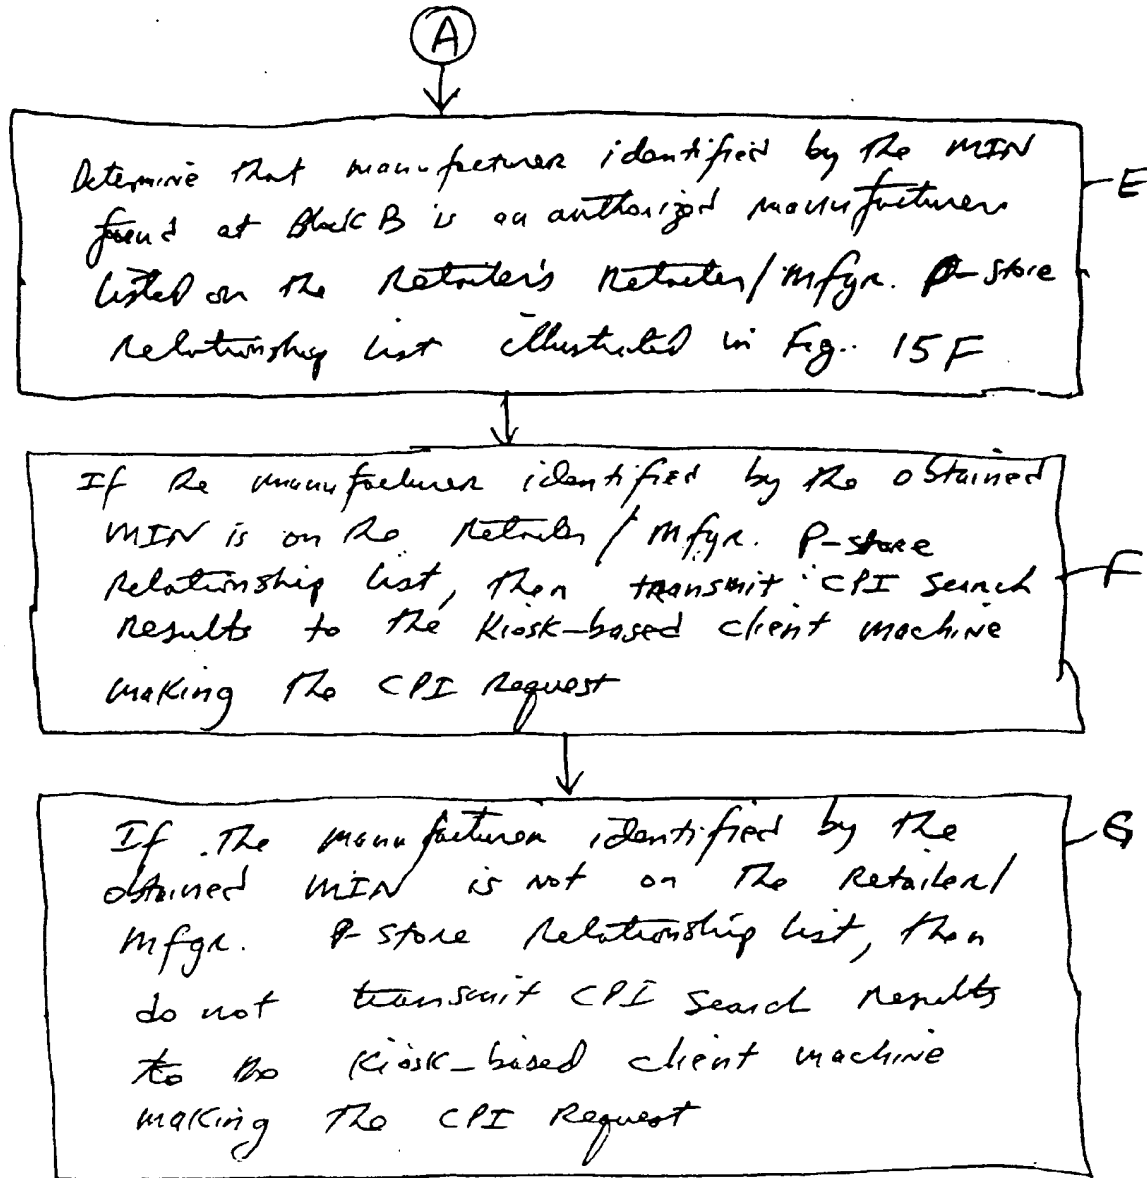 A
Determine that manufacturer identified by the MIN
found at Block B is an authorized manufacturer
listed on the Retailer's Retailer/Mfgr. P-store
Relationship list illustrated in Fig. 15F
E
If the manufacturer identified by the obtained
MIN is on the Retailer/Mfgr. P-store
Relationship list, then transmit CPI search
Results to the Kiosk-based client machine
making the CPI Request
F
If the manufacturer identified by the
obtained MIN is not on the Retailer/
Mfgr. P-store Relationship list, then
do not transmit CPI search Results
to the Kiosk-based client machine
making the CPI Request
G